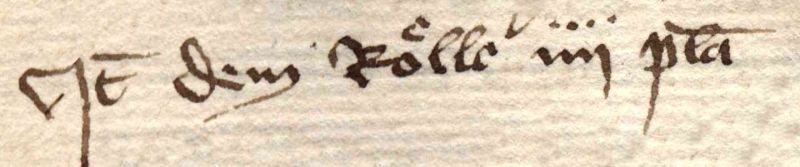 It̄ dem Roͤlle iiij pla̅